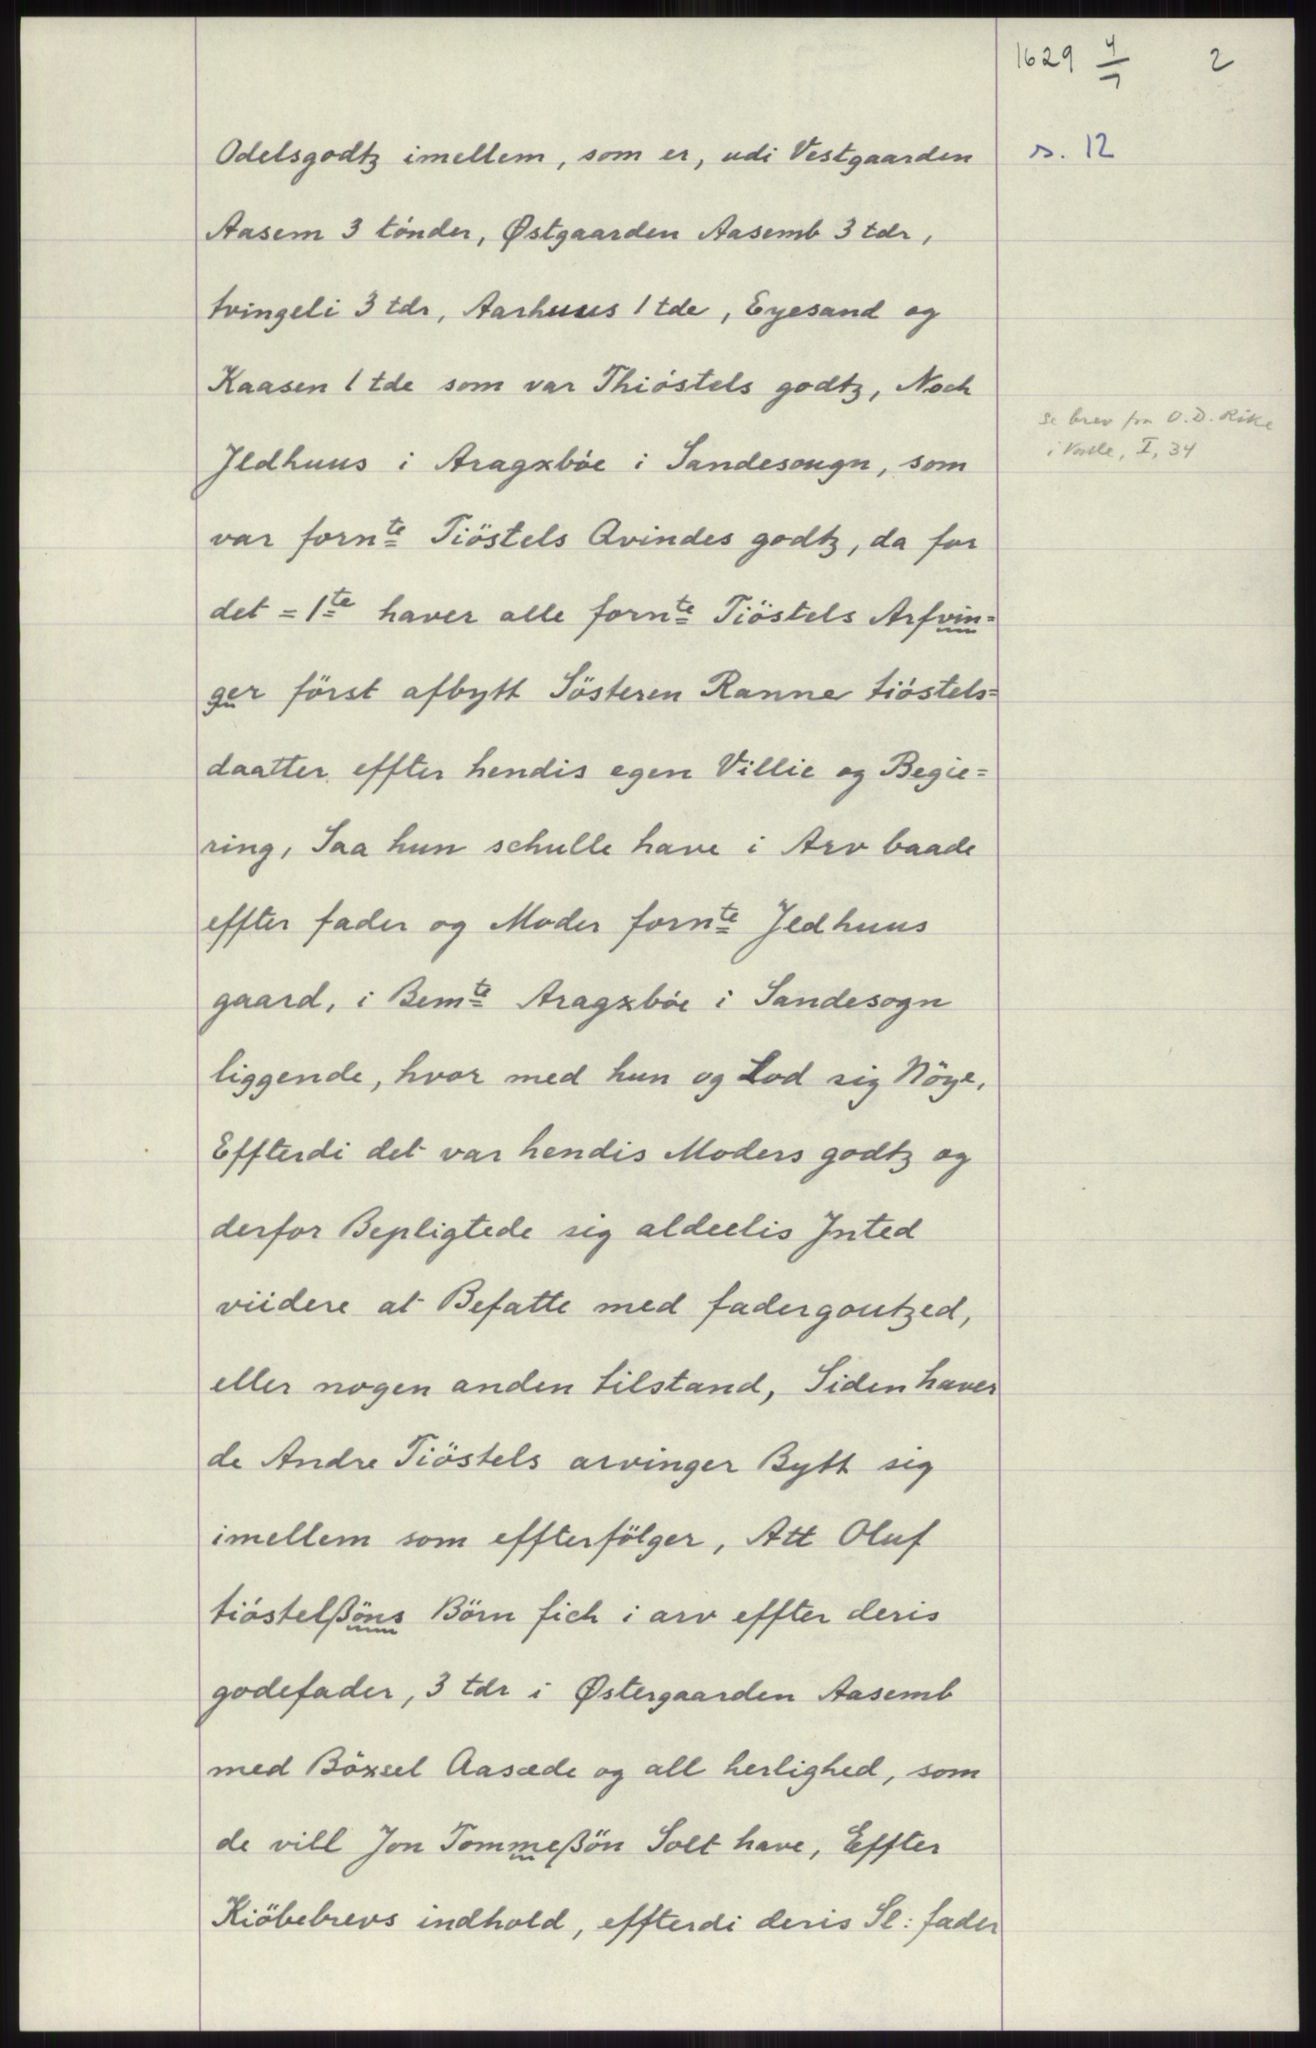 1629 4/7 2
s. 12
Odelsgodtz imellem, som er, udi Vestgaarden
Aasem 3 tónder, Østgaarden Aasemb 3 tdr,
tvingeli 3 tdr, Aarhuus 1 tde, Eyesand og
Kaasen 1 tde som var Thióstels godtz, Noch
Jldhuus i Aragxbóe i Sandesougn, som
var fornte Tiöstels Qvindes godtz, da for
det = 1te haver alle fornte Tiöstels Arfvin=
ger först afbytt Sösteren Ranne tióstels=
daatter effter hendis egen Villie og Begie=
ring, Saa hun schulle have i Arv baade
effter fader og Moder fornte Jldhuus
gaard, i Bemte Aragxbóe i Sandesogn
liggende, hvor med hun og Lod sig Nöye,
Effterdi det var hendis Moders godtz og
derfor Bepligtede sig aldeelis Jnted
viidere at Befatte med fadergoutzed,
eller nogen anden tilstand, Siden haver
de Andre Tiöstels arvinger Bytt sig
imellem som effterfölger, Att Oluf
tióstelßöns Börn fich i arv effter deris
godefader, 3 tdr i Østergaarden Aasemb
med Böxsel Aasæde og all herlighed, som
de vill Jon Tommeßön Solt have, Effter
Kiöbebrevs indhold, effterdi deris Sl: fader
se brev fra O.D. Rike
i Valle, I, 34